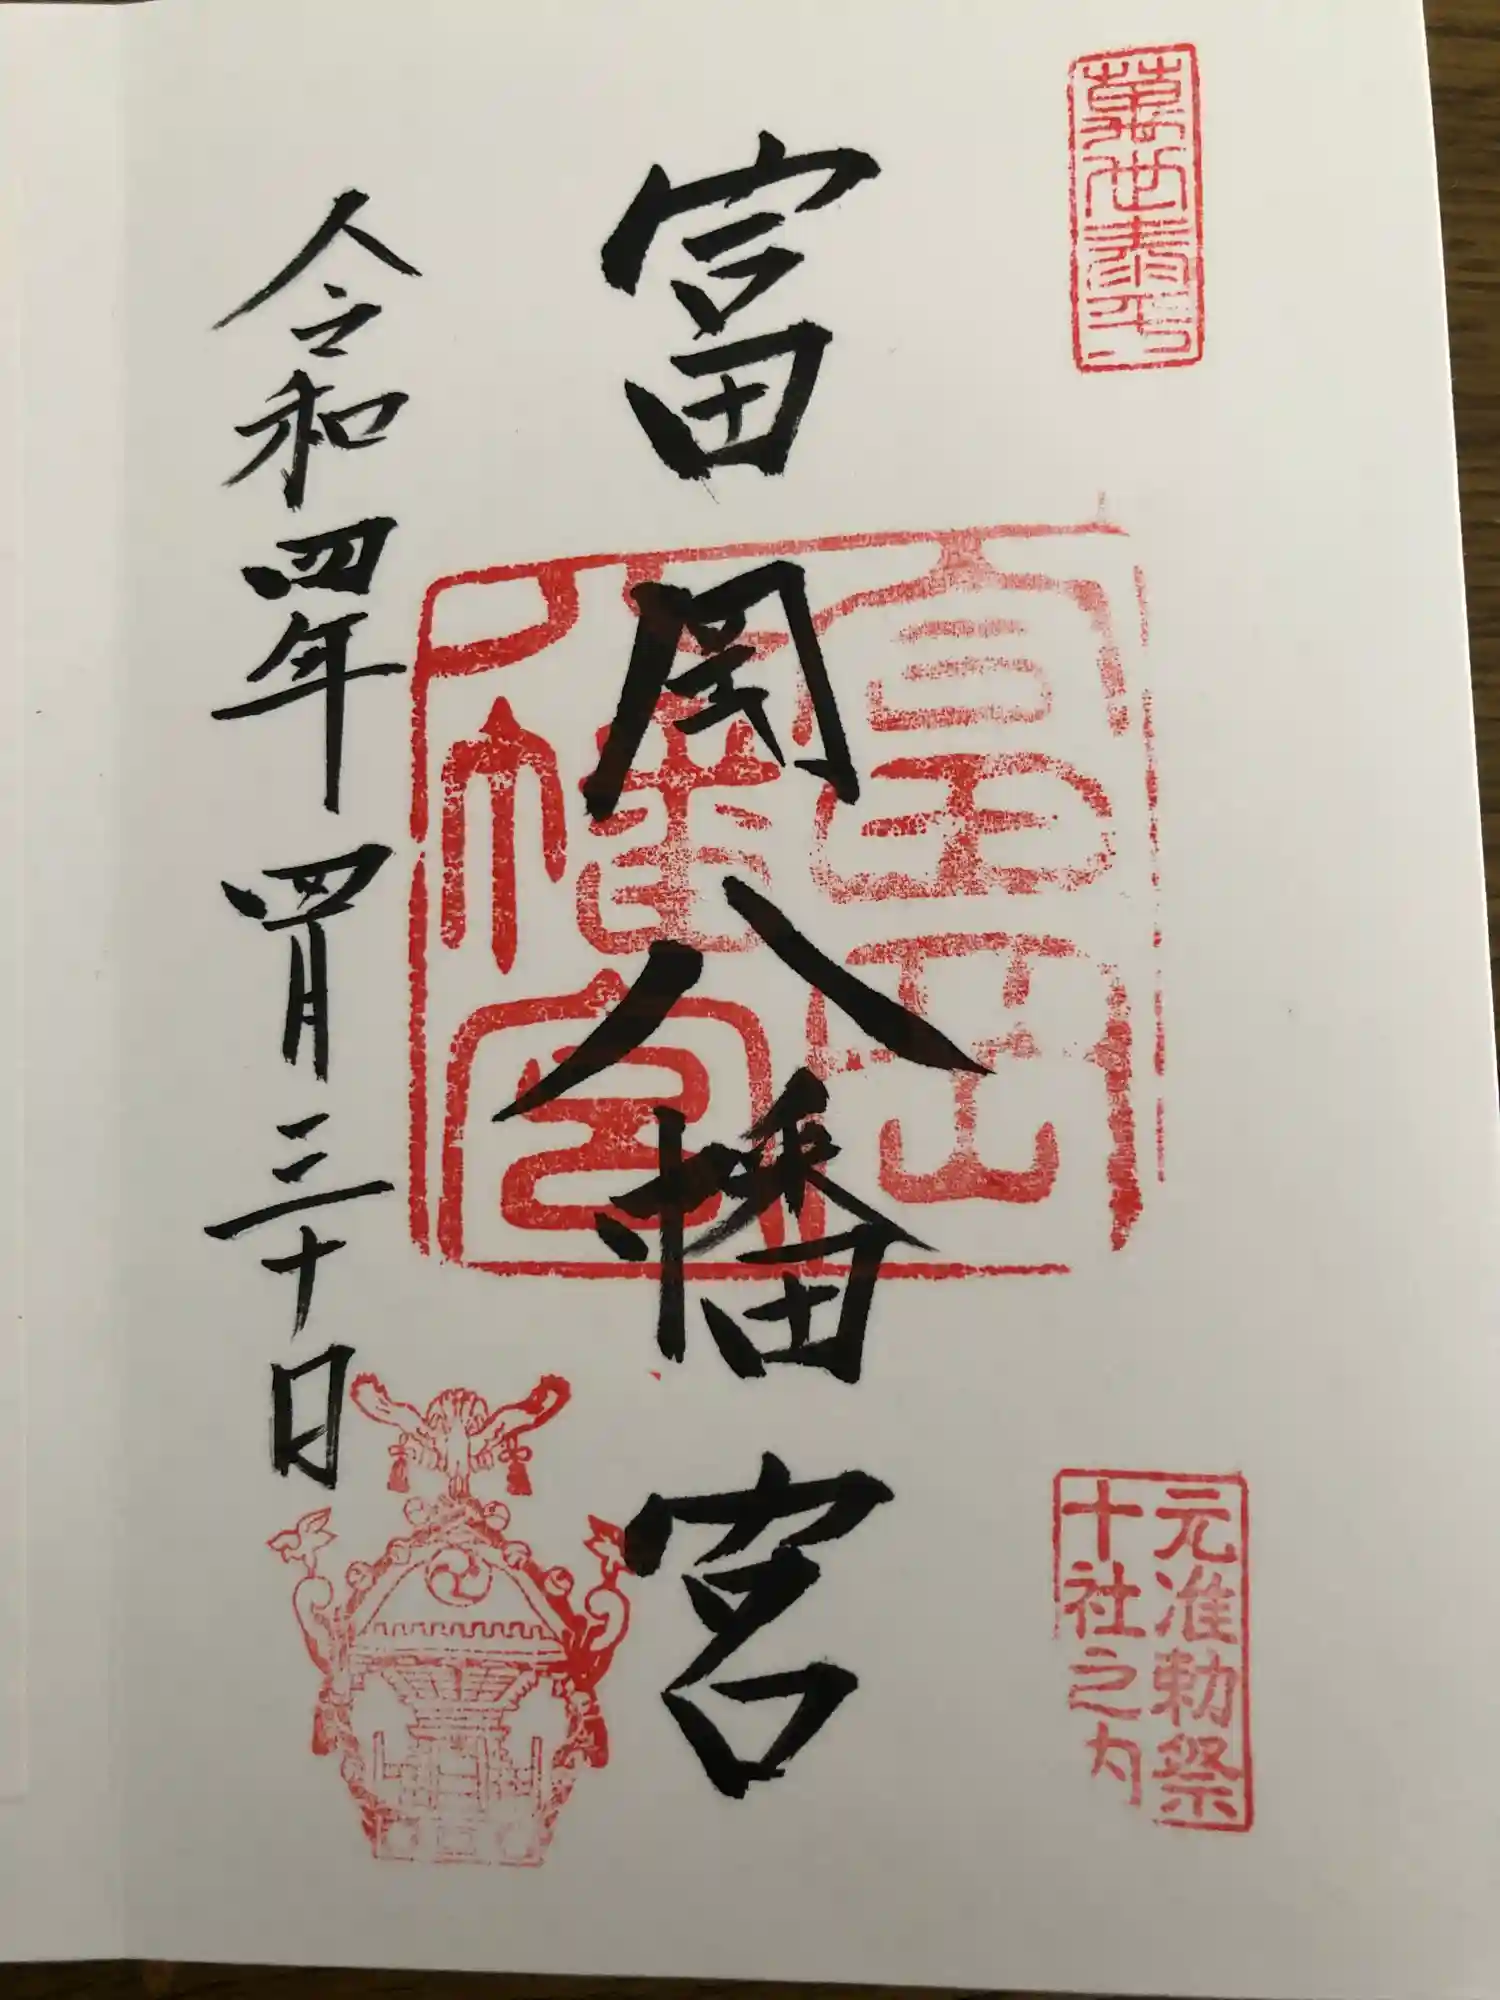 萬世泰平
元准勅祭
十社之内
富岡八幡宮
富岡
八幡宮
令和四年 四月三十日